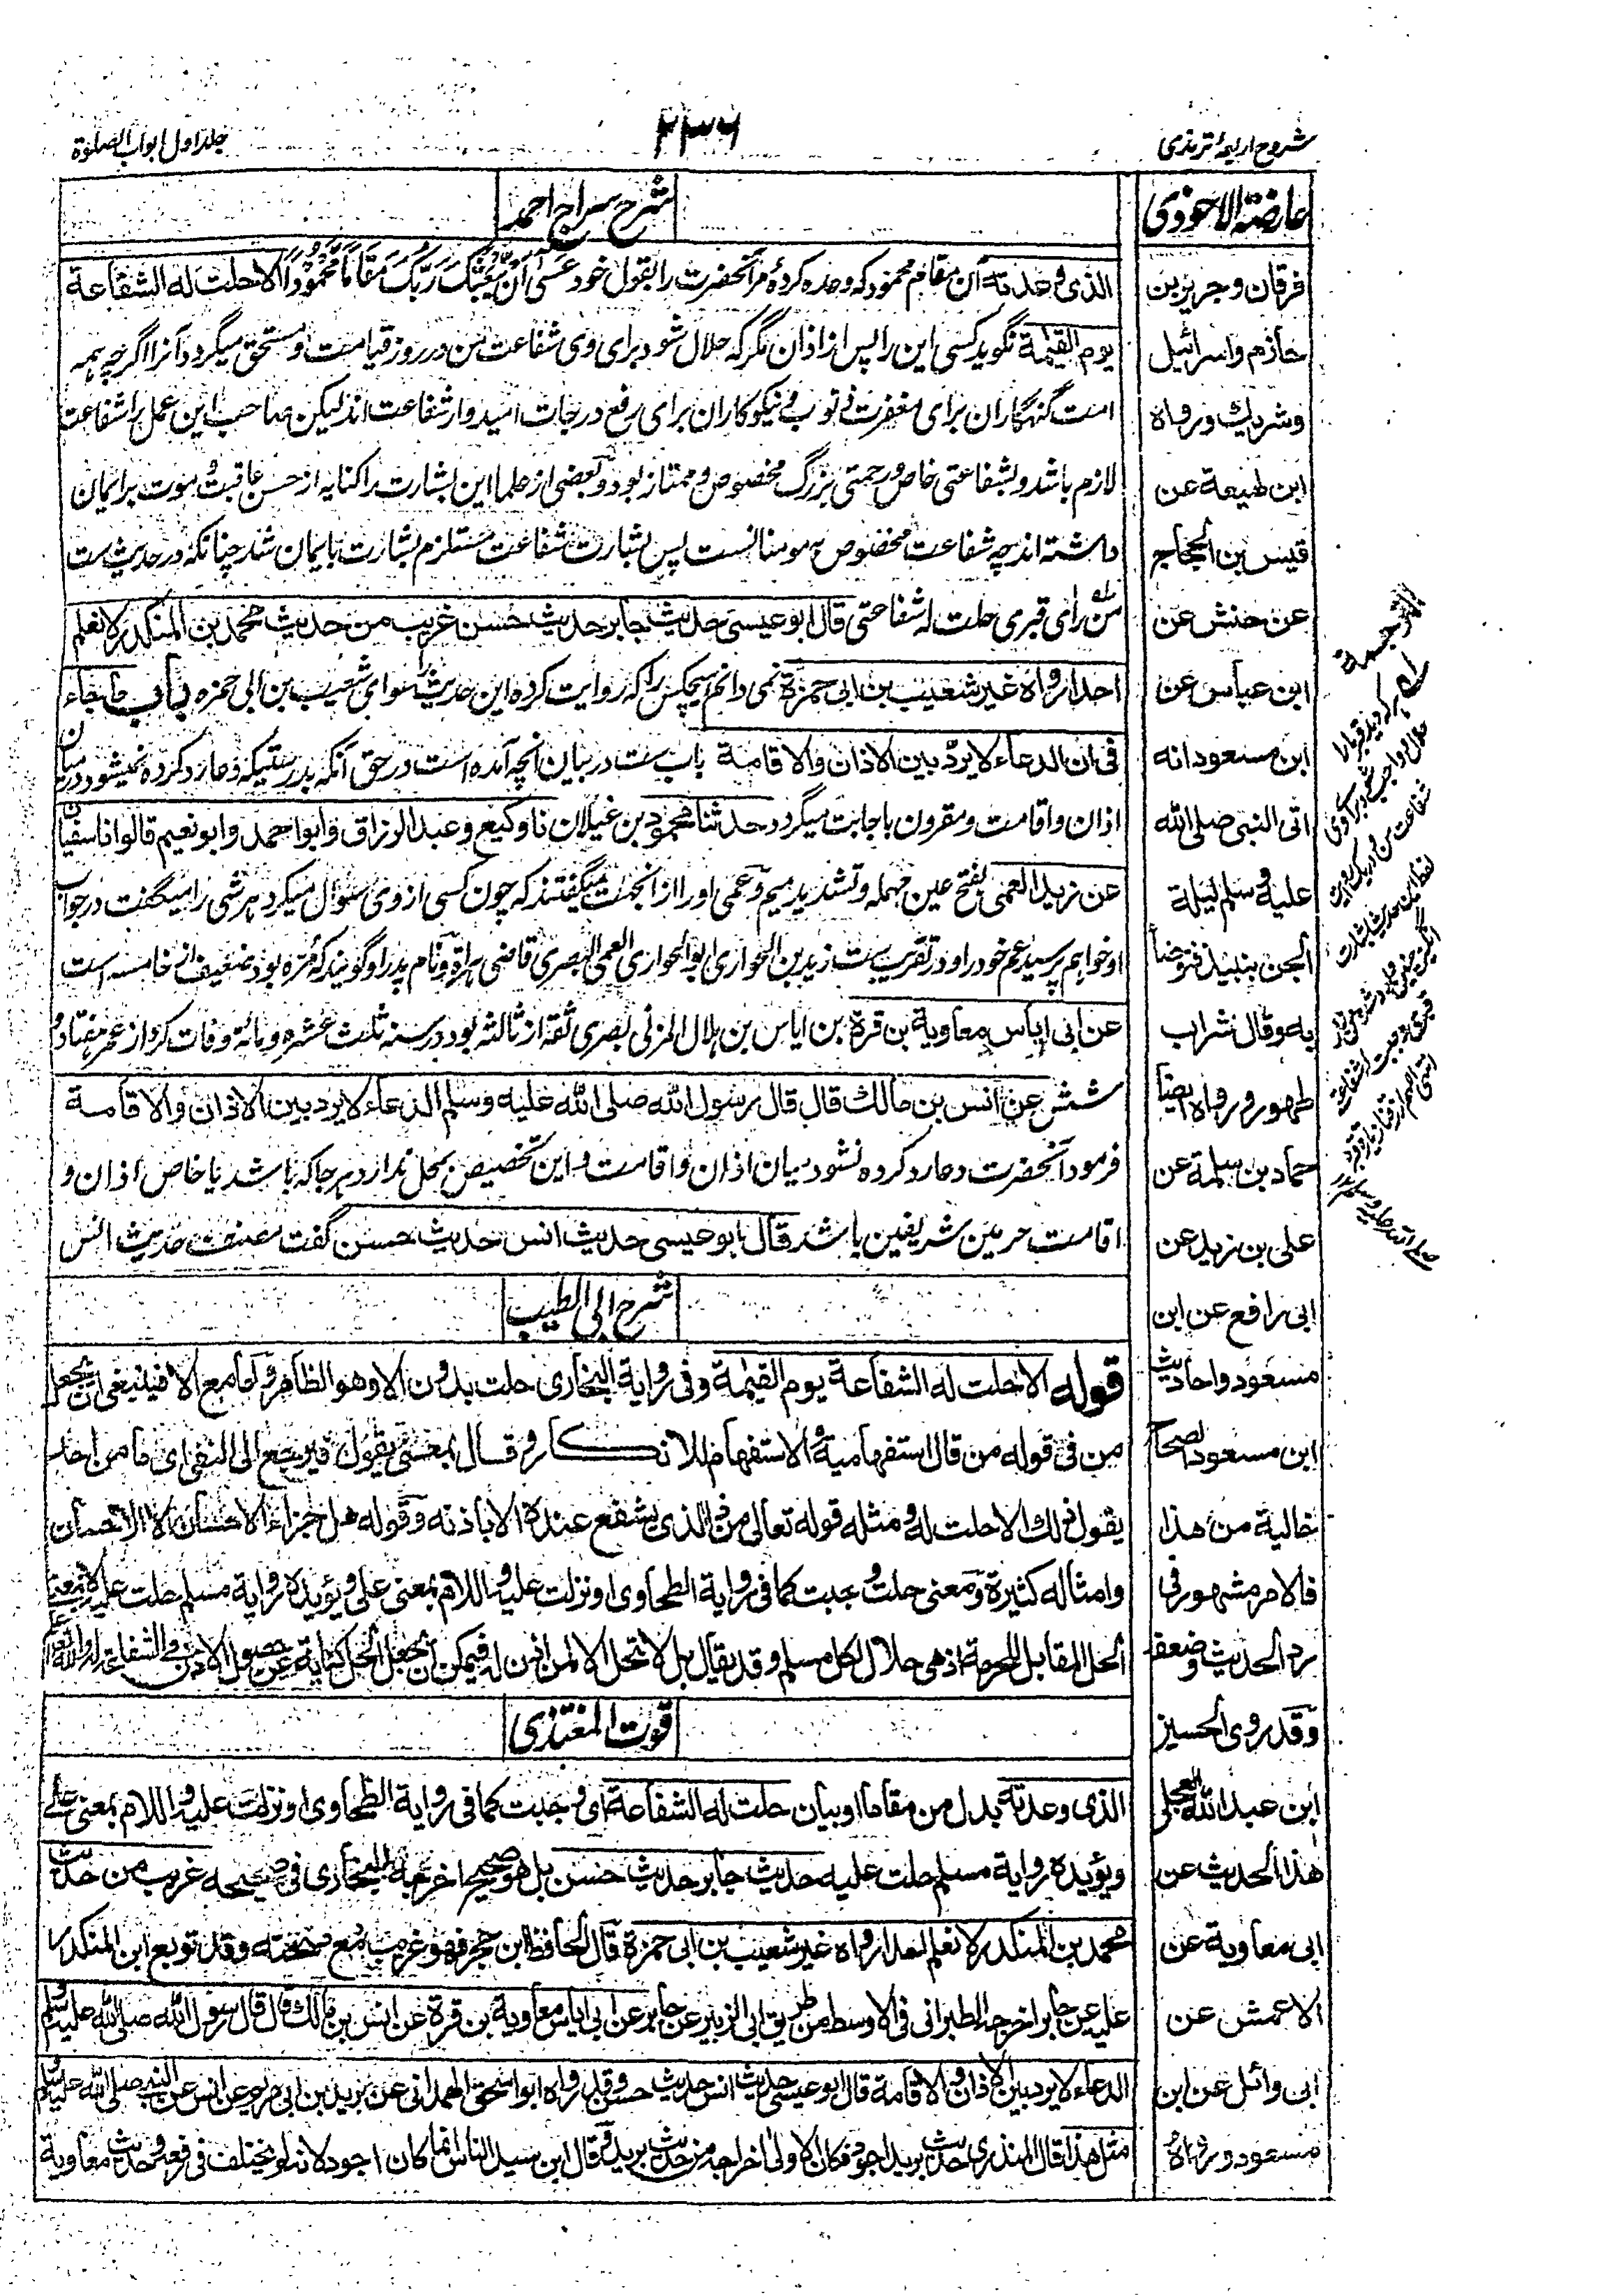 شروح اربعۂ ترمذی
۲۳۶
جلد اول ابواب الصلوة
عارضة الاحوذی
فرقان وجرير بن
حازم واسرائیل
وشريك ورواه
ابن لهيعة عن
قيس بن الحجاج
عن حنش عن
ابن عباس عن
ابن مسعود انه
اتى النبى صلى الله
عليه وسلم ليلة
الجن بنبيذ فتوضأ
به وقال شراب
طهور ورواه ايضاً
حماد بن سلمة عن
على بن زيد عن
ابى رافع عن ابن
مسعود واحاديث
ابن مسعود الصحاح
خالية من هذا
فالامر مشهور فى
رد الحديث وضعفه
وقد روى الحسين
ابن عبدالله العجلى
هذا الحديث عن
ابى معاوية عن
الاعمش عن
ابى وائل عن ابن
مسعود ورواه
شرح سراج احمد
الذى وعدته آن مقام محمود که وعده کردهٔ مر آنحضرت را بقول خود عسى ان يبعثك ربك مقاما محمودا الا حلت له الشفاعة
يوم القيمة نگوید کسی این را پس از اذان مگر که حلال شود برای وی شفاعت من در روز قیامت و مستحق میگردد آنرا اگر چه همه
امت گنهگاران برای مغفرت ذنوب و نیکوکاران برای رفع درجات امیدوار شفاعت اند لیکن صاحب این عمل را شفاعت
لازم باشد و بشفاعتی خاص و رحمتی بزرگ مخصوص و ممتاز بود و بعضی از علما این بشارت را کنایه از حسن عاقبت و موت بر ایمان
داشته اند چه شفاعت مخصوص به مومنانست پس بشارت شفاعت مستلزم بشارت بایمان شد چنانکه در حدیث ست
من رای قبری حلت له شفاعتی قال ابو عيسى حديث جابر حديث حسن غريب من حديث محمد بن المنكدر لا نعلم
احدا رواه غير شعيب بن ابى حمزة نمی دانم هیچکس را که روایت کرده این حدیث را سوای شعیب بن ابی حمزه باب ما جاء
فى ان الدعاء لا يرد بين الاذان والاقامة باب ست در بیان آنچه آمده است در حق آنکه بدرستیکه دعا رد کرده نمیشود در میان
اذان و اقامت و مقرون باجابت میگردد حدثنا محمود بن غيلان نا وكيع وعبد الرزاق وابو احمد وابو نعيم قالوا نا سفيان
عن زيد العمى بفتح عین مهمله و تشدید میم و عمی او را از انجهت میگفتند که چون کسی از وی سئوال میکرد هر شی را میگفت در جواب
او خواهم پرسید عم خود را و در تقریب ست زید بن الحواری ابو الحواری العمی البصری قاضی هراة و نام پدر او گویند که مره بود ضعیف از خامسه است
عن ابى اياس معاوية بن قرة بن ایاس بن هلال المزنی بصری ثقه از ثالثه بود در سنه ثلث عشره و مائة وفات کرد از عمر هفتاد و
شش عن انس بن مالك قال قال رسول الله صلى الله عليه وسلم الدعاء لا يرد بين الاذان والاقامة
فرمود آنحضرت دعا رد کرده نشود میان اذان و اقامت و این تخصیص بمحل ندارد هر جا که باشد یا خاص اذان و
اقامت حرمین شریفین باشد قال ابو عيسى حديث انس حديث حسن گفت مصنف حدیث انس
شرح ابی الطیب
قوله الا حلت له الشفاعة يوم القيمة وفى رواية البخارى حلت بدون الا وهو الظاهر واما مع الا فينبغى ان يجعل
من فى قوله من قال استفهامية والاستفهام للانكار وقال بمعنى يقول فيرجع الى النفى اى ما من احد
يقول ذلك الا حلت له ومثله قوله تعالى من ذا الذى يشفع عنده الا باذنه وقوله هل جزاء الاحسان الا الاحسان
وامثاله كثيرة ومعنى حلت وجبت كما فى رواية الطحاوى او نزلت عليه واللام بمعنى على ويؤيده رواية مسلم حلت عليه لا بمعنى
الحل المقابل للحرمة اذ هى حلال لكل مسلم وقد يقال بل لا تحل الا لمن اذن له فيمكن ان يجعل الحل كناية عن حصول الاذن فى الشفاعة
قوت المغتذی
الذى وعدته بدل من مقاما او بيان حلت له الشفاعة اى وجبت كما فى رواية الطحاوى او نزلت عليه واللام بمعنى على
ويؤيده رواية مسلم حلت عليه حديث جابر حديث حسن بل هو صحيح اخرجه البخارى فى صحيحه غريب من حديث
محمد بن المنكدر لا نعلم احدا رواه غير شعيب بن ابى حمزة قال الحافظ ابن حجر فهو غريب مع صحته وقد توبع ابن المنكدر
عليه عن جابر اخرجه الطبرانى فى الاوسط من طريق ابى الزبير عن جابر عن ابى اياس معاوية بن قرة عن انس بن مالك قال قال رسول الله صلى الله عليه وسلم
الدعاء لا يرد بين الاذان والاقامة قال ابو عيسى حديث انس حديث حسن وقد رواه ابو اسحق الهمدانى عن بريد بن ابى مريم عن انس عن النبى صلى الله عليه وسلم
مثل هذا قال المنذرى حديث بريد اجود فكان الاولى اخراجه من حديث بريد قال ابن سيد الناس انما كان اجود لانه لم يختلف فى رفعه وحديث معاوية
الترجمة
هر که دید قبر مرا